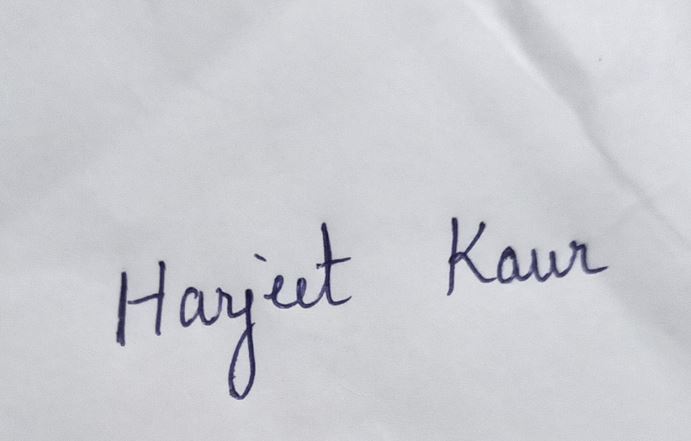 Harjeet Kaur